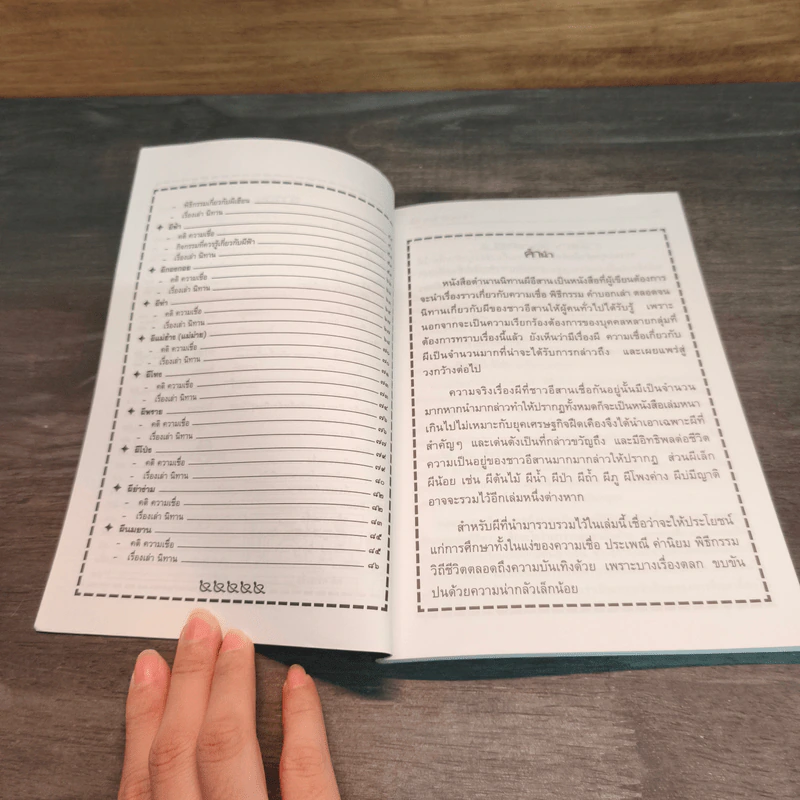 - พิธีกรรมเกี่ยวกับผีเฮือน
- เรื่องเล่า นิทาน
ผีฟ้า
- คติ ความเชื่อ
- กิจกรรมที่ควรรู้เกี่ยวกับผีฟ้า
- เรื่องเล่า นิทาน
ผีกองกอย
- คติ ความเชื่อ
- เรื่องเล่า นิทาน
- คติ ความเชื่อ
- เรื่องเล่า นิทาน
ผีแม่ฮ้าง (แม่ม่าย)
- คติ ความเชื่อ
- เรื่องเล่า นิทาน
- คติ ความเชื่อ
- เรื่องเล่า นิทาน
ผีพราย
- คติ ความเชื่อ
- เรื่องเล่า นิทาน ๗๗
ผีโป่ง ๗๙
- คติ ความเชื่อ ๗๙
- เรื่องเล่า นิทาน ๘๐
ผีย่าง่าม ๘๒
- คติ ความเชื่อ ๘๒
- เรื่องเล่า นิทาน ๘๓
ผีนมยาน ๘๕
- คติ ความเชื่อ ๘๕
- เรื่องเล่า นิทาน ๘๖
คำนำ
หนังสือตำนานนิทานผีอีสานเป็นหนังสือที่ผู้เขียนต้องการ
จะนำเรื่องราวเกี่ยวกับความเชื่อ พิธีกรรม คำบอกเล่า ตลอดจน
นิทานเกี่ยวกับผีของชาวอีสานให้ผู้คนทั่วไปได้รับรู้ เพราะ
นอกจากจะเป็นความเรียกร้องต้องการของบุคคลหลายกลุ่มที่
ต้องการทราบเรื่องนี้แล้ว ยังเห็นว่ามีเรื่องผี ความเชื่อเกี่ยวกับ
ผีเป็นจำนวนมากที่น่าจะได้รับการกล่าวถึง และเผยแพร่สู่
วงกว้างต่อไป
ความจริงเรื่องผีที่ชาวอีสานเชื่อกันอยู่นั้นมีเป็นจำนวน
มากหากนำมากล่าวทำให้ปรากฏทั้งหมดก็จะเป็นหนังสือเล่มหนา
เกินไปไม่เหมาะกับยุคเศรษฐกิจฝืดเคืองจึงได้นำเอาเฉพาะผีที่
สำคัญๆ และเด่นดังเป็นที่กล่าวขวัญถึง และมีอิทธิพลต่อชีวิต
ความเป็นอยู่ของชาวอีสานมากมากล่าวให้ปรากฏ ส่วนผีเล็ก
ผีน้อย เช่น ผีต้นไม้ ผีน้ำ ผีป่า ผีถ้ำ ผีภู ผีโพงค่าง ผีบ่มีญาติ
อาจจะรวมไว้อีกเล่มหนึ่งต่างหาก
สำหรับผีที่นำมารวบรวมไว้ในเล่มนี้ เชื่อว่าจะให้ประโยชน์
แก่การศึกษาทั้งในแง่ของความเชื่อ ประเพณี ค่านิยม พิธีกรรม
วิถีชีวิตตลอดถึงความบันเทิงด้วย เพราะบางเรื่องตลก ขบขัน
ปนด้วยความน่ากลัวเล็กน้อย